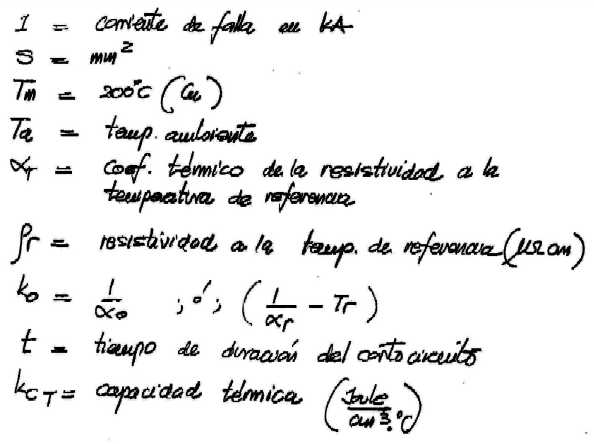 I = corriente de falla en kA
S = mm²
Tm = 200°C (Cu)
Ta = temp. ambiente
αr = Coef. térmico de la resistividad a la
temperatura de referencia
ρr = resistividad a la temp. de referencia (μΩ cm)
k₀ = 1/α₀ ; ó ; (1/αr - Tr)
t = tiempo de duración del cortocircuito
kCT = capacidad térmica (Joule/cm³·°C)